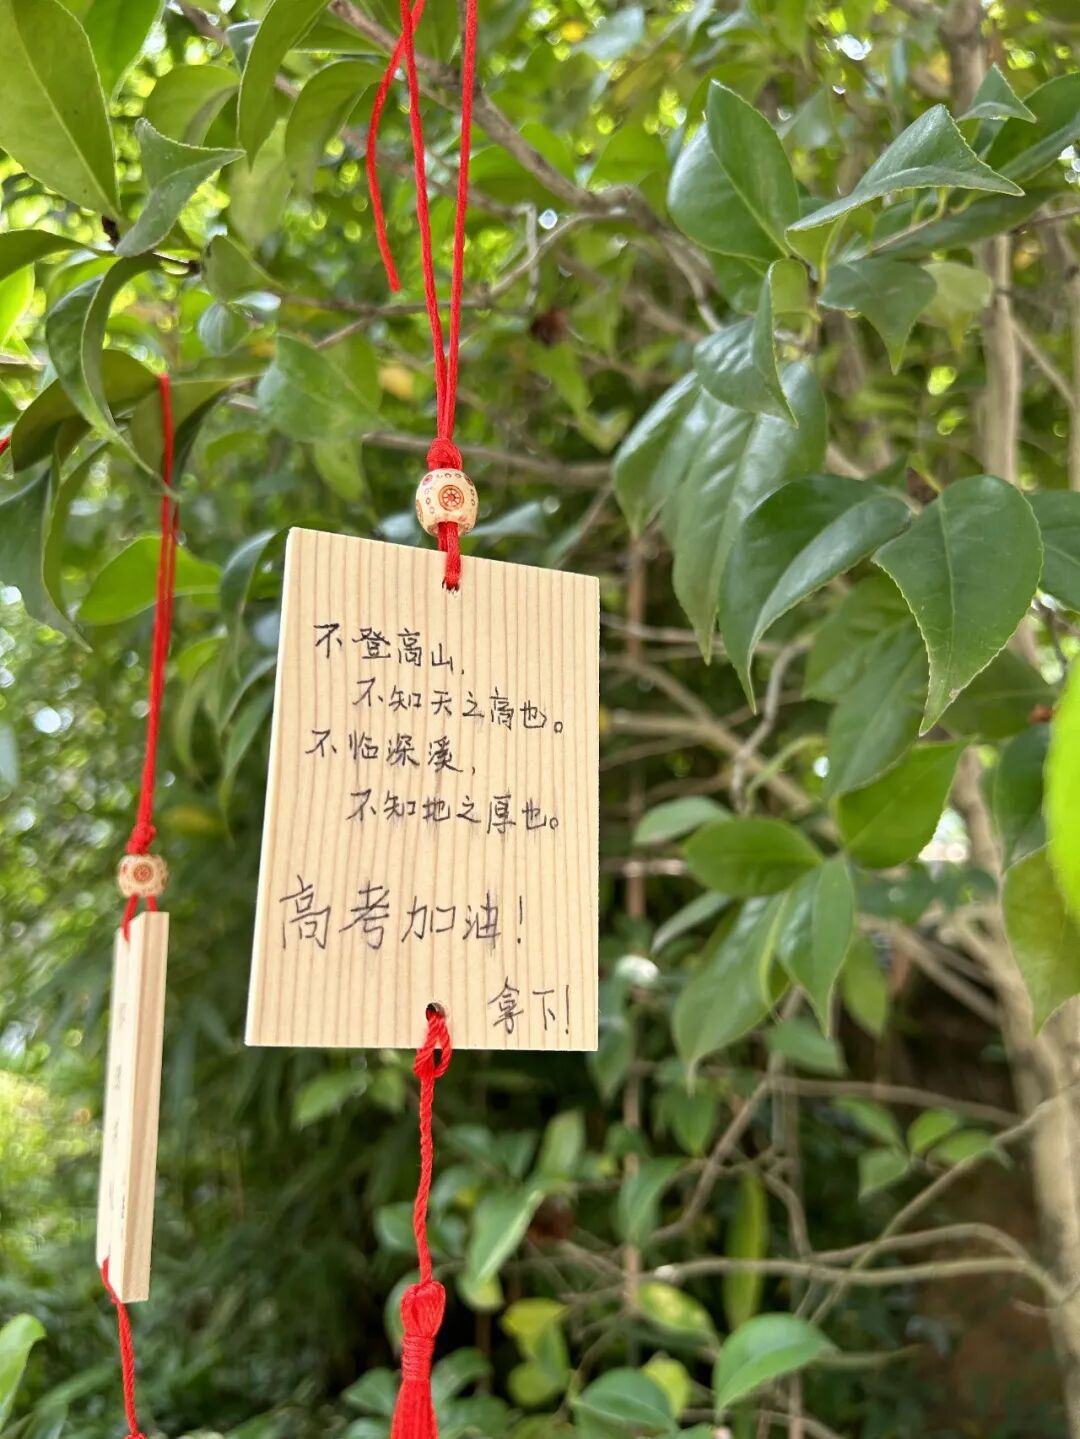 不登高山，
不知天之高也。
不临深溪，
不知地之厚也。
高考加油！
拿下！